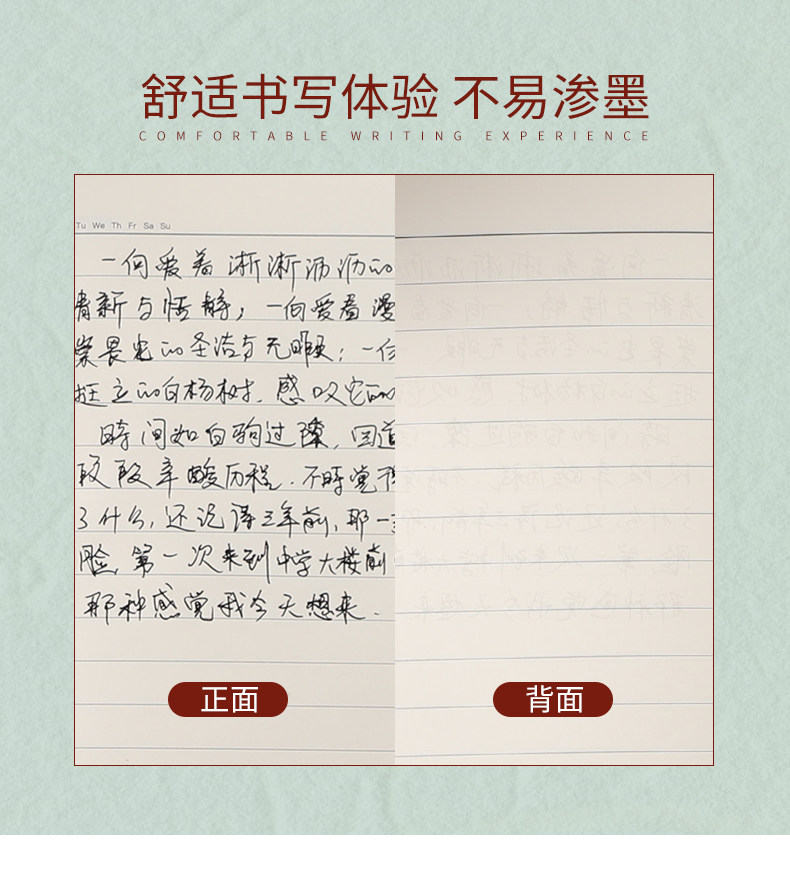 舒适书写体验 不易渗墨
COMFORTABLE WRITING EXPERIENCE
Tu We Th Fr Sa Su
一向爱着淅淅沥沥的
清新与恬静，一向爱着漫
崇畏光的圣洁与无暇；一
挺立的白杨树，感叹它的
时间如白驹过隙，回
段段辛酸历程。不时觉得
了什么，还记得三年前，那一
脸，第一次来到中学大楼前
那种感觉我今天想来.
正面
背面